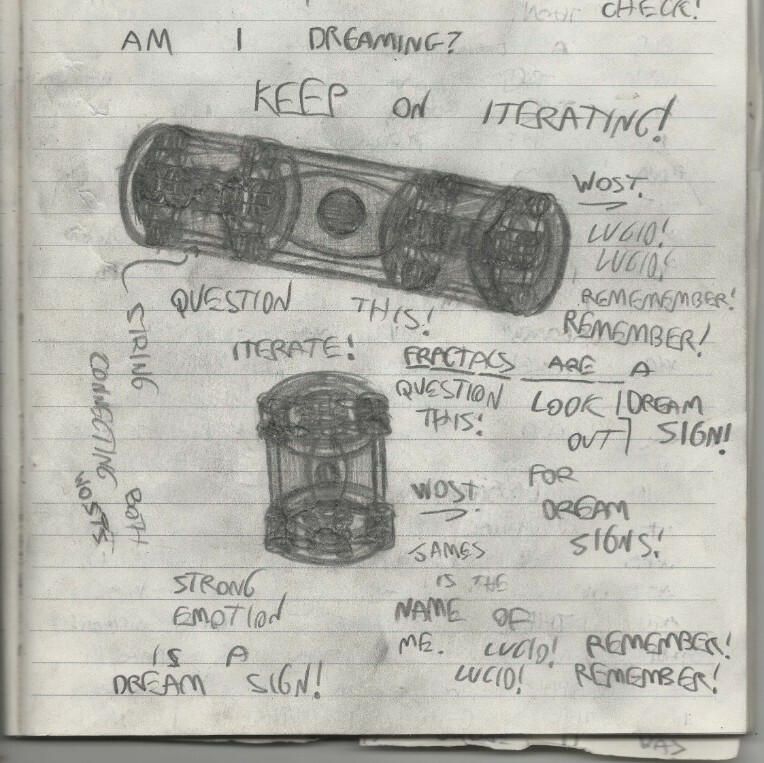 CHECK!
AM I DREAMING?
KEEP ON ITERATING!
WOST.
LUCID!
LUCID!
REMEMEMBER!
REMEMBER!
QUESTION THIS!
STRING
CONNECTING
BOTH
WOSTS.
ITERATE!
FRACTALS ARE A
DREAM
SIGN!
QUESTION
THIS!
LOOK
OUT
FOR
DREAM
SIGNS!
WOST.
JAMES
IS THE
NAME OF
ME. LUCID! REMEMBER!
LUCID! REMEMBER!
STRONG
EMOTION
IS A
DREAM SIGN!
WAS